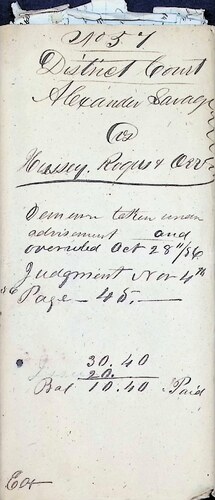 No 57
District Court
Alexander Savage
vs
Hussey, Rogers & Orr
Demurrer taken under
advisement and
overruled Oct 28"/56
Judgment Nov 4th
56
Page - 45. -
30.40
20.
Bal 10.40 Paid